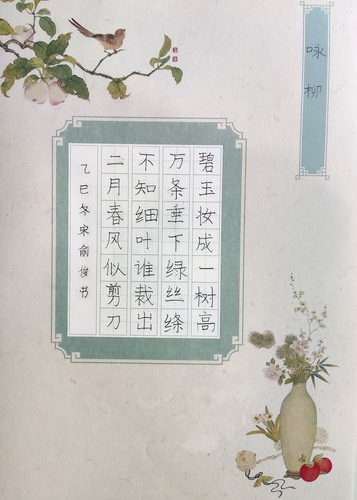 咏柳
碧玉妆成一树高
万条垂下绿丝绦
不知细叶谁裁出
二月春风似剪刀
乙巳冬宋俞俊书